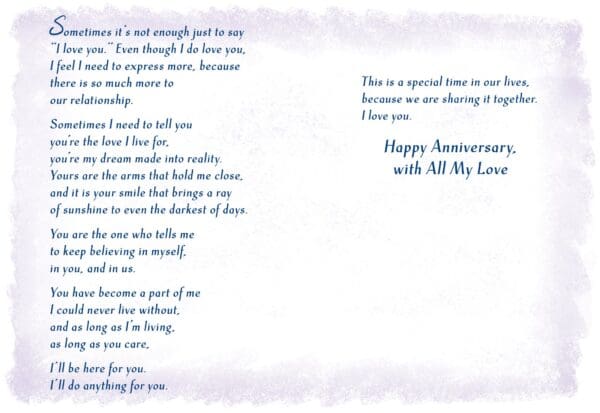 Sometimes it's not enough just to say
"I love you." Even though I do love you,
I feel I need to express more, because
there is so much more to
our relationship.
Sometimes I need to tell you
you're the love I live for,
you're my dream made into reality.
Yours are the arms that hold me close,
and it is your smile that brings a ray
of sunshine to even the darkest of days.
You are the one who tells me
to keep believing in myself,
in you, and in us.
You have become a part of me
I could never live without,
and as long as I'm living,
as long as you care,
I'll be here for you.
I'll do anything for you.
This is a special time in our lives,
because we are sharing it together.
I love you.
Happy Anniversary,
with All My Love